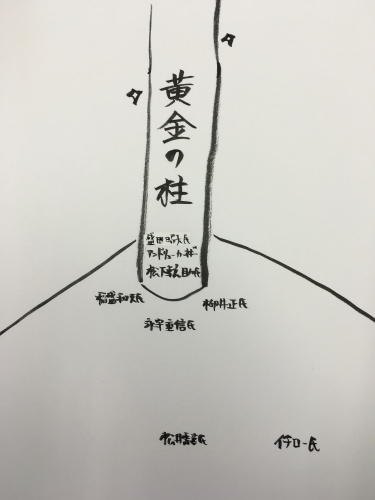 タ
タ
黄金の柱
盛田昭夫氏
アンドリューカーネギー
松下幸之助氏
稲盛和夫氏
柳井正氏
永守重信氏
松井秀喜氏
イチロー氏